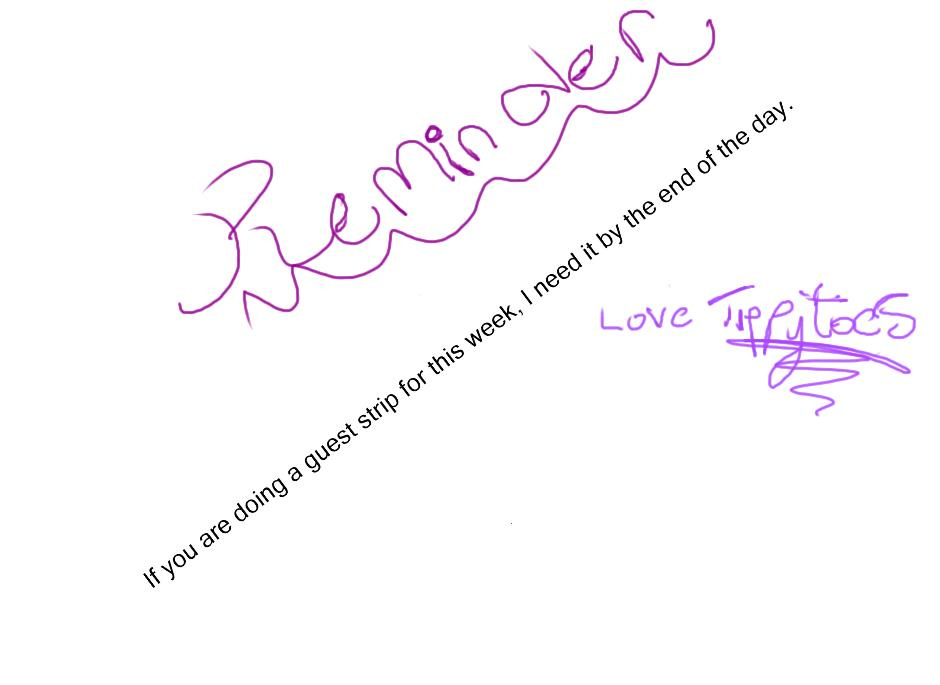 Reminder
If you are doing a guest strip for this week, I need it by the end of the day.
Love Tippytoes